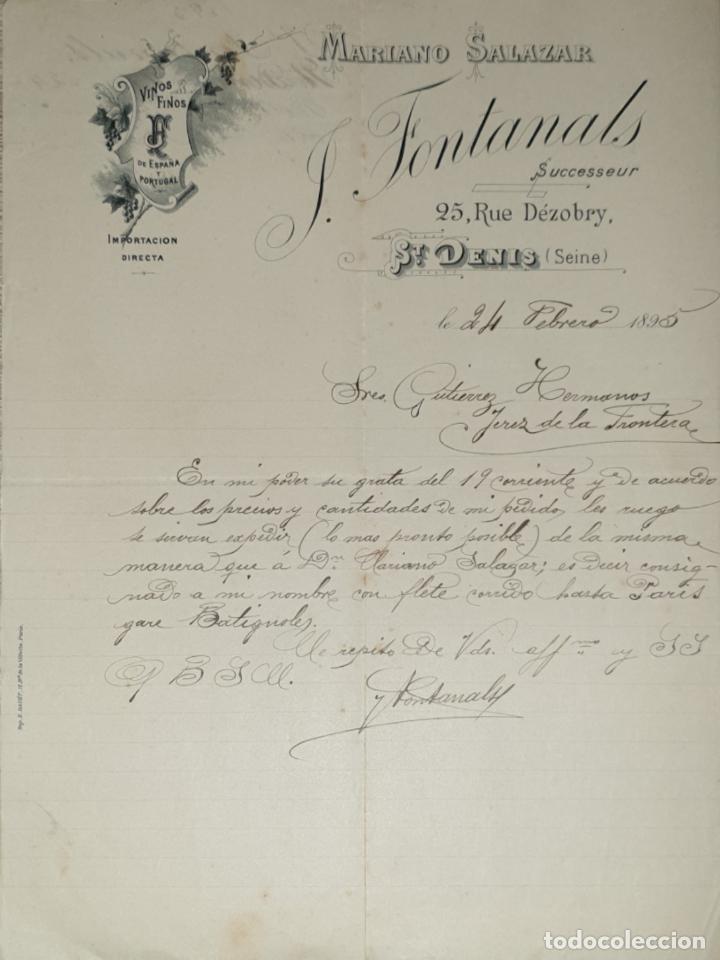 Mariano Salazar
J. Fontanals
Successeur
25, Rue Dézobry,
St. Denis (Seine)
Viños Finos
F
de España
y
Portugal
Importacion
directa
le 24 Febrero 1895
Sres. Gutierrez Hermanos
Jerez de la Frontera
En mi poder su grata del 19 corriente y de acuerdo
sobre los precios y cantidades de mi pedido, les ruego
se sirvan expedir (lo mas pronto posible) de la misma
manera que á Dn. Mariano Salazar; es decir consig-
nado a mi nombre con flete corrido hasta Paris
gare Batignoles.
Me repito De Vds. affmo y SS
Q B S M.
J Fontanals
todocoleccion.net